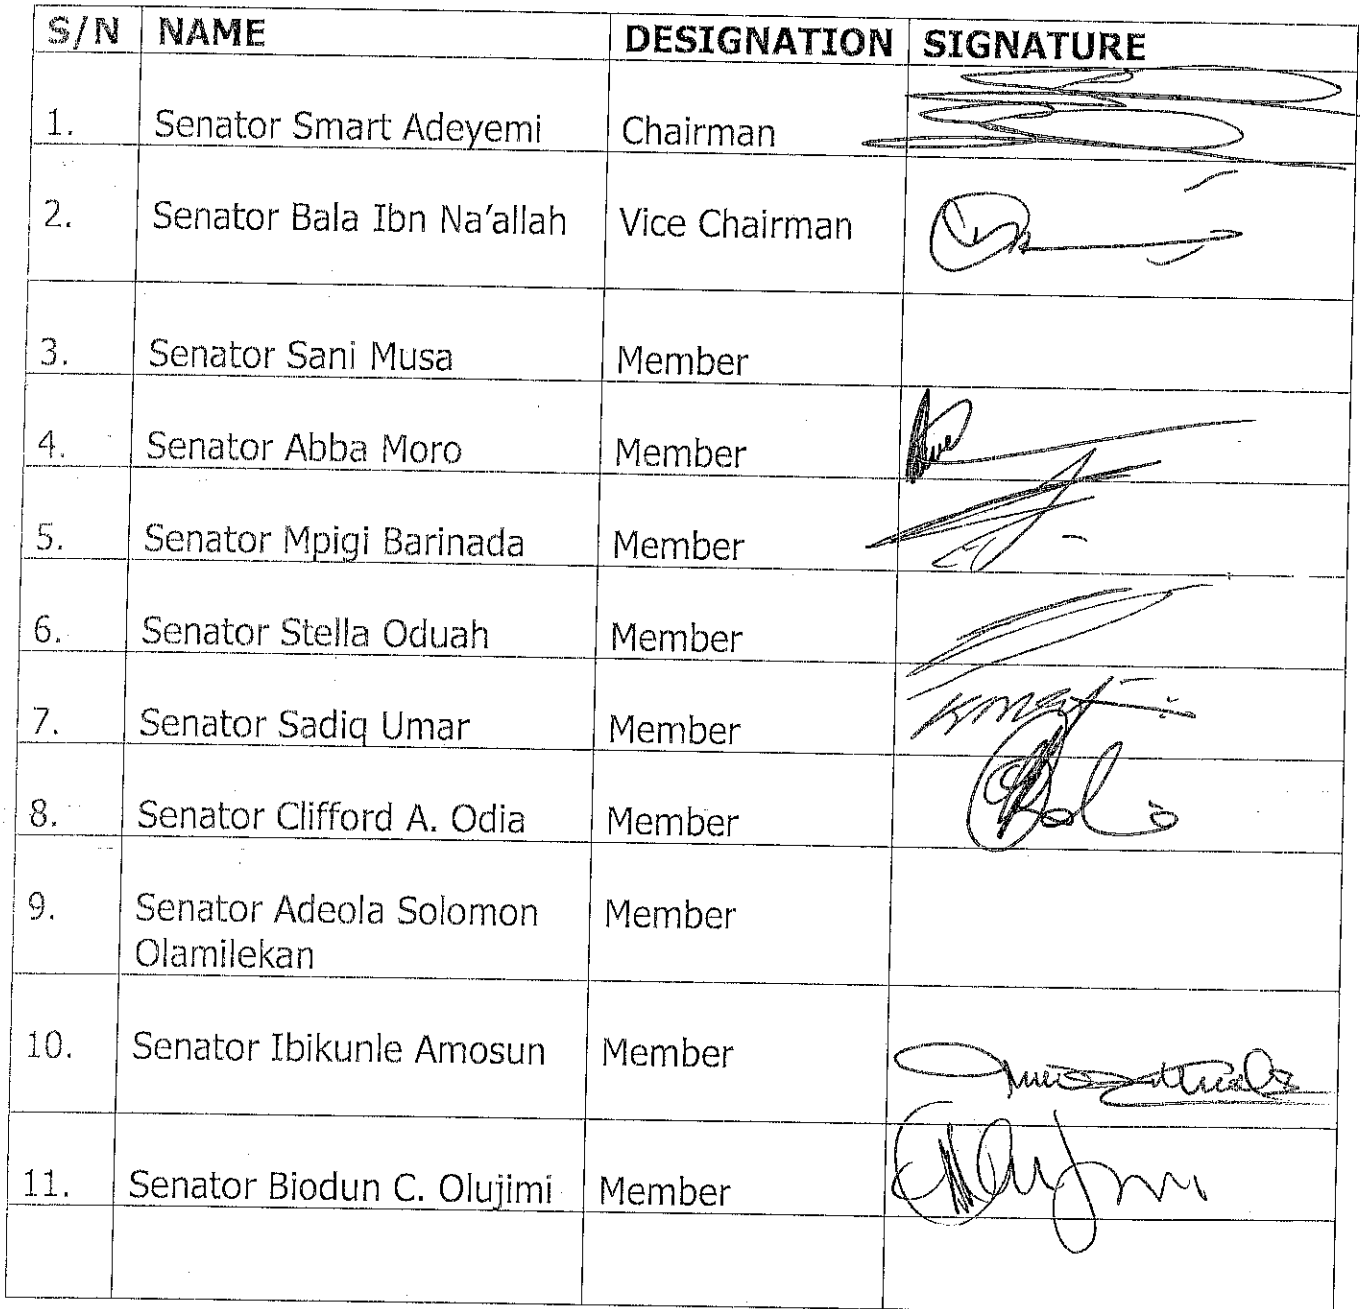 S/N NAME DESIGNATION SIGNATURE
1. Senator Smart Adeyemi Chairman
2. Senator Bala Ibn Na'allah Vice Chairman
3. Senator Sani Musa Member
4. Senator Abba Moro Member
5. Senator Mpigi Barinada Member
6. Senator Stella Oduah Member
7. Senator Sadiq Umar Member
8. Senator Clifford A. Odia Member
9. Senator Adeola Solomon Member
Olamilekan
10. Senator Ibikunle Amosun Member
11. Senator Biodun C. Olujimi Member